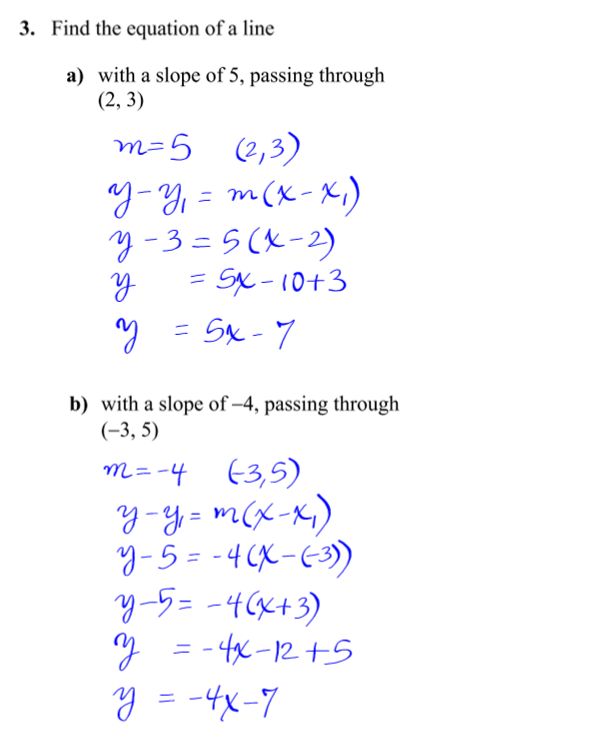 3. Find the equation of a line
a) with a slope of 5, passing through
(2, 3)
m=5 (2,3)
y-y₁ = m(x-x₁)
y-3 = 5(x-2)
y = 5x-10+3
y = 5x-7
b) with a slope of –4, passing through
(–3, 5)
m=-4 (-3,5)
y-y₁ = m(x-x₁)
y-5 = -4(x-(-3))
y-5 = -4(x+3)
y = -4x-12+5
y = -4x-7